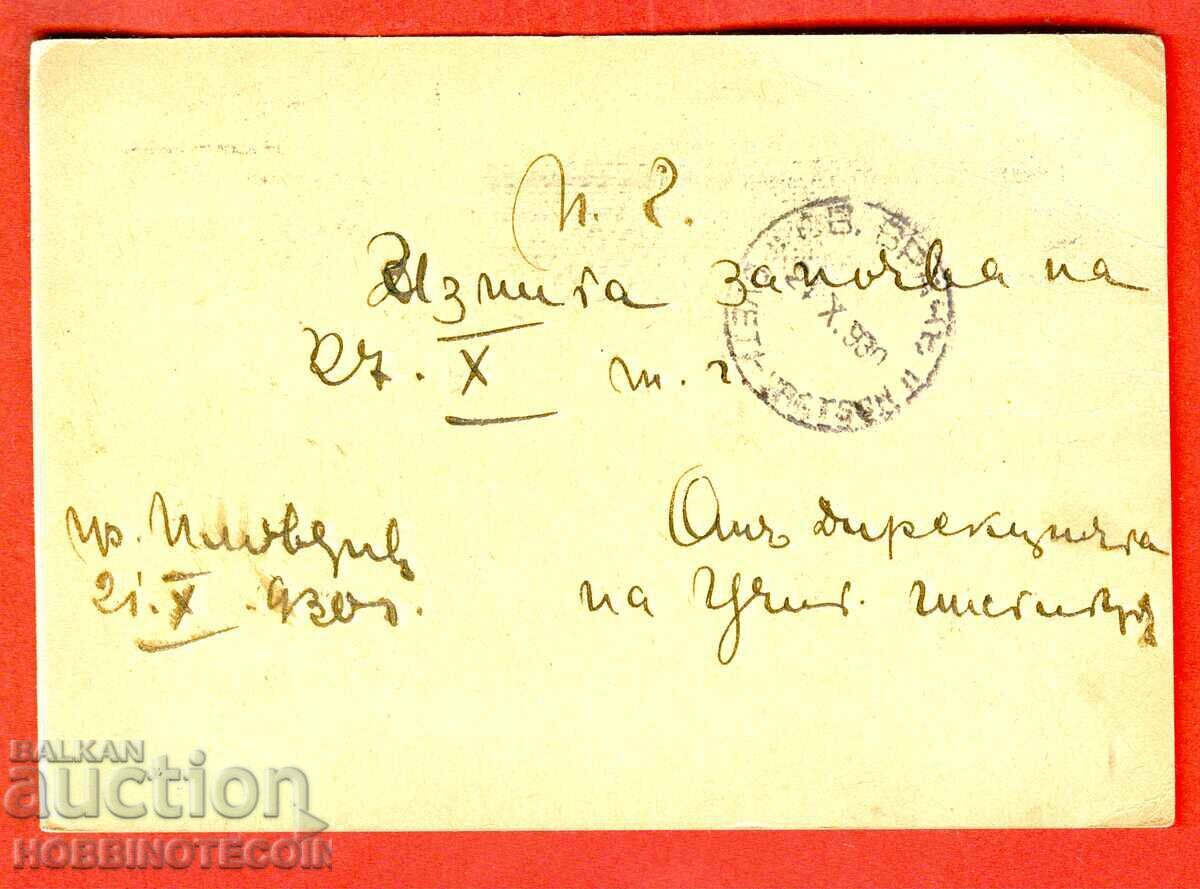 П. Г.
Изпита започва на
27. X т. г.
гр. Пловдив
21. X .930г.
Отъ дирекцията
на Учит. институтъ
X.930
BALKAN
auction
HOBBINOTECOIN